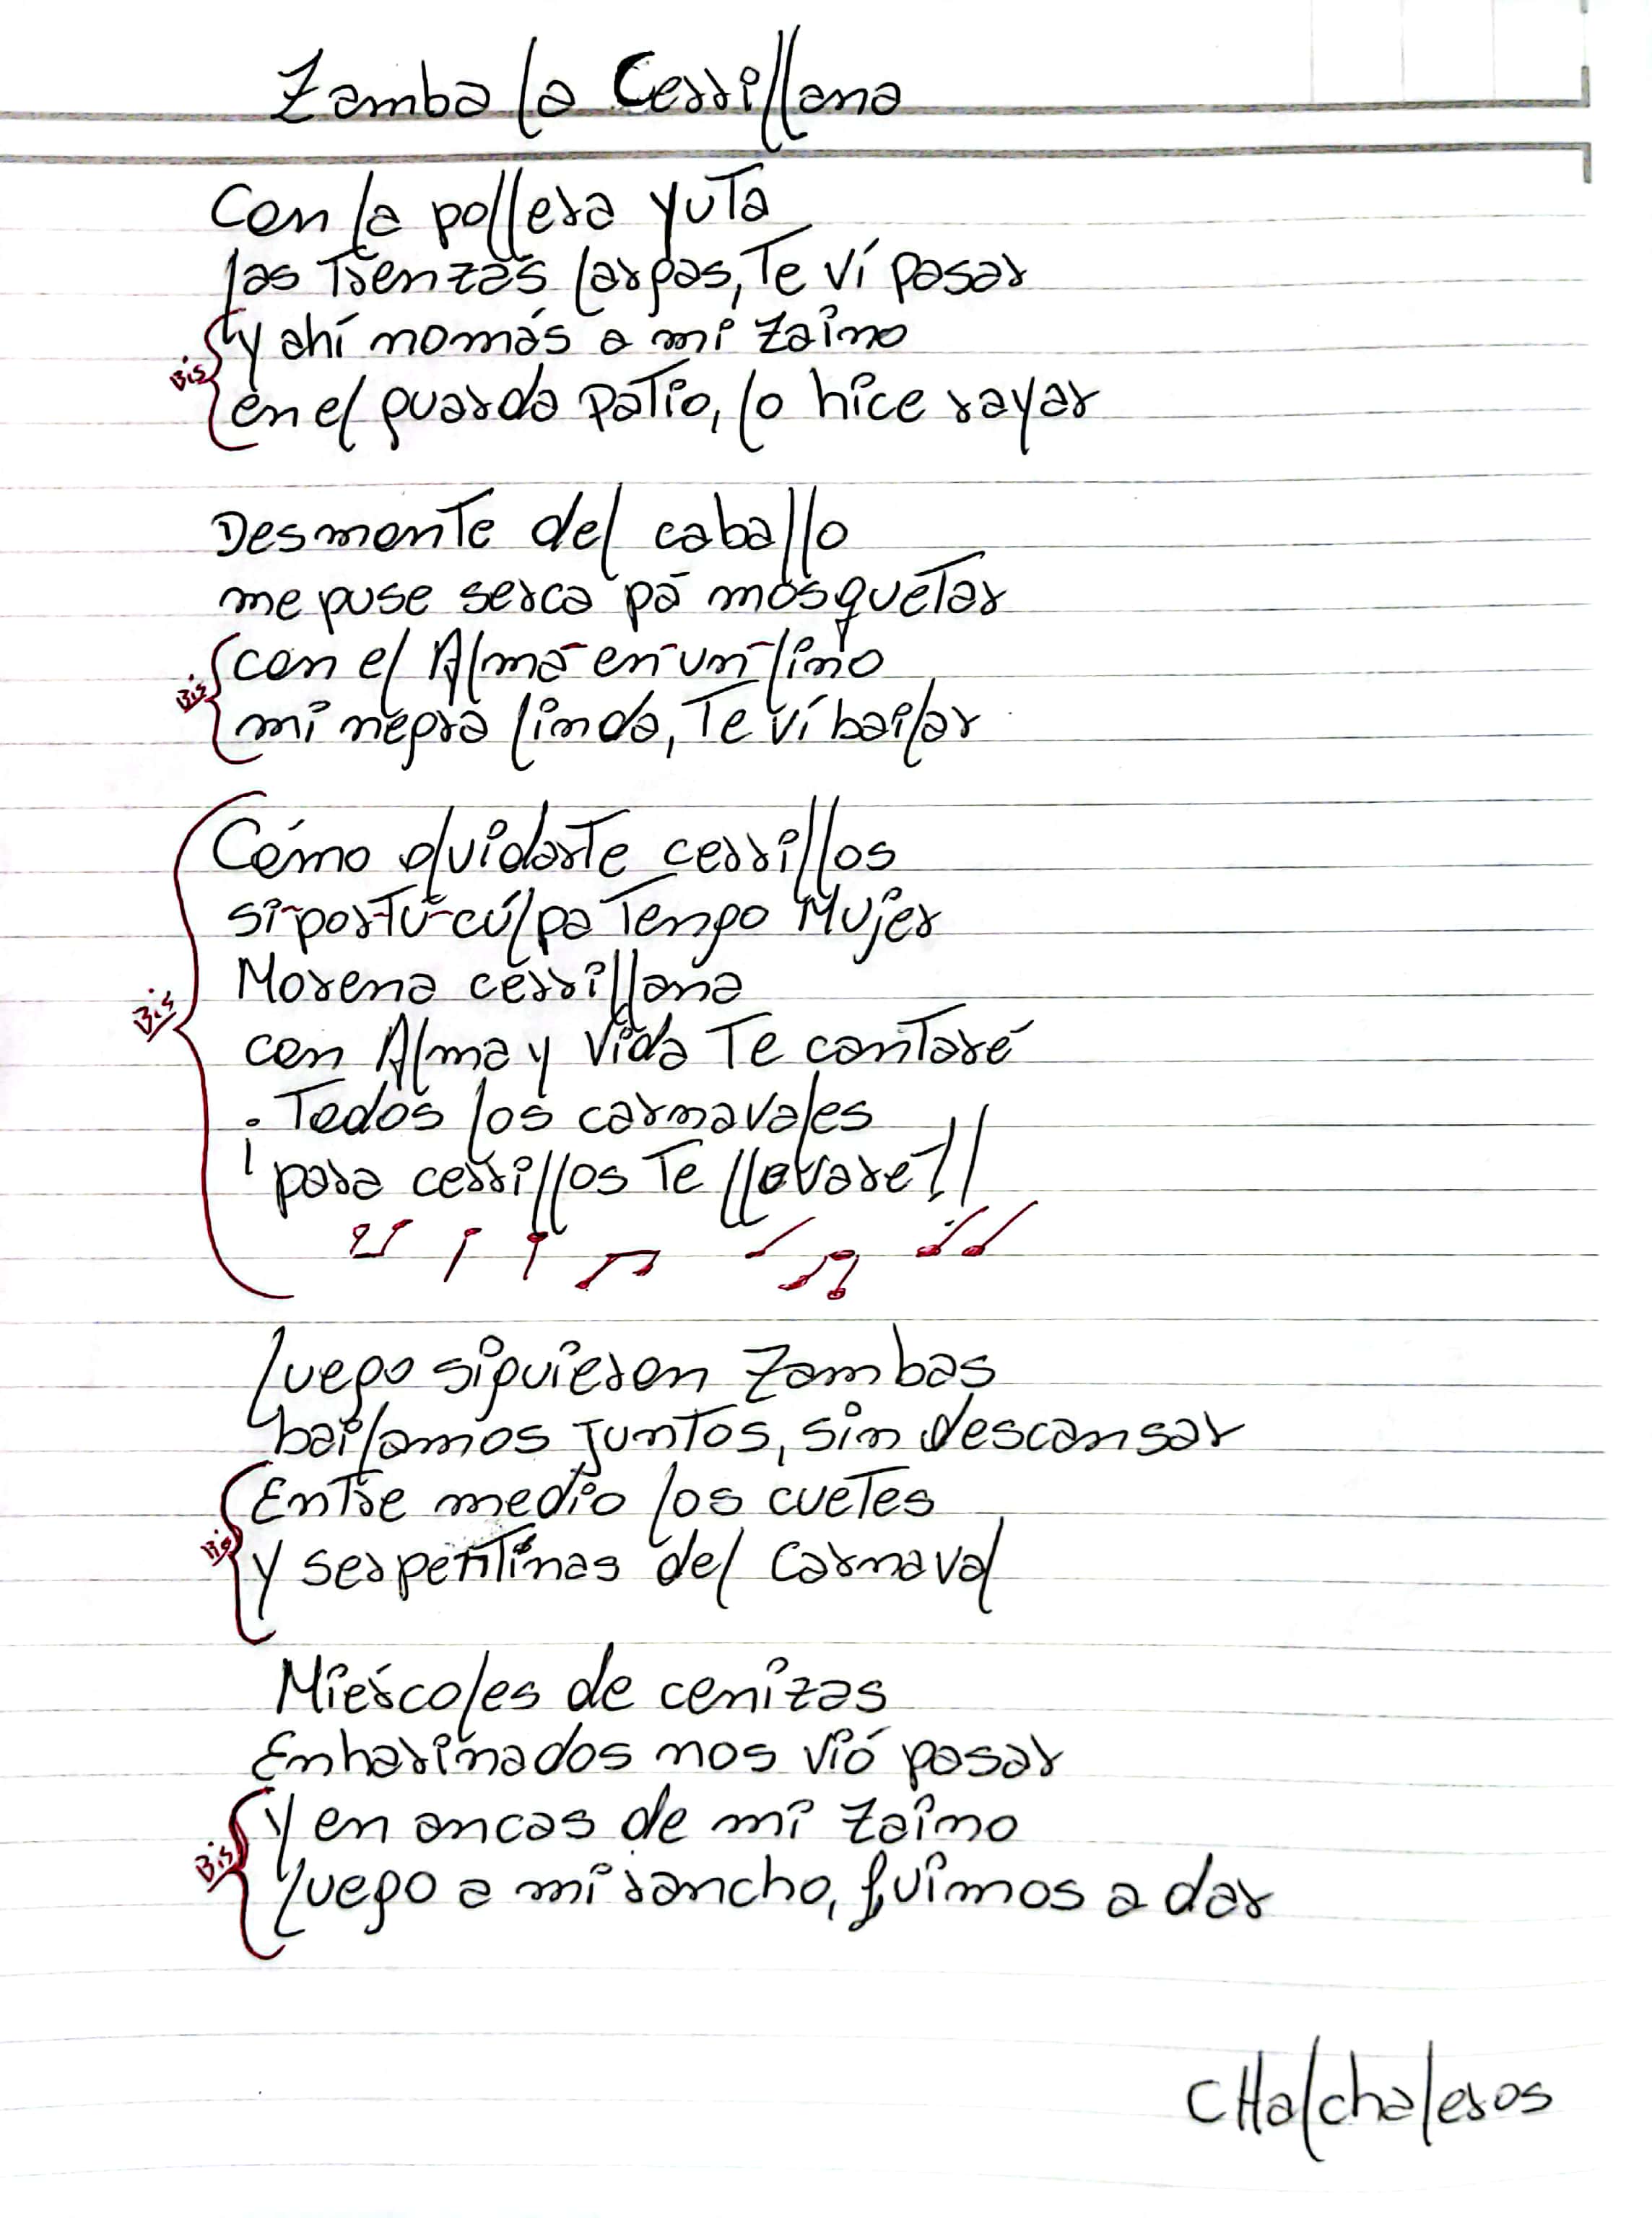 Zamba la Cerrillana
Con la pollera yuta
las Trenzas largas, Te ví pasar
y ahí nomás a mi zaino
Bis
en el guarda patio, lo hice rayar
Desmonte del caballo
me puse serca pá mosquetar
con el Alma en un lino
Bis
mi negra linda, Te ví bailar
Cómo olvidarte cerrillos
si por Tu cúlpa Tengo Mujer
Morena cerrillana
Bis
con Alma y Vida Te cantaré
¡Todos los carnavales
para cerrillos Te llevare!!
luego siguieron Zambas
bailamos juntos, sin descansar
Entre medio los cuetes
Bis
y serpentinas del Carnaval
Miércoles de cenizas
Enharinados nos vió pasar
Y en ancas de mi zaino
Bis
luego a mi rancho, fuimos a dar
CHalchaleros